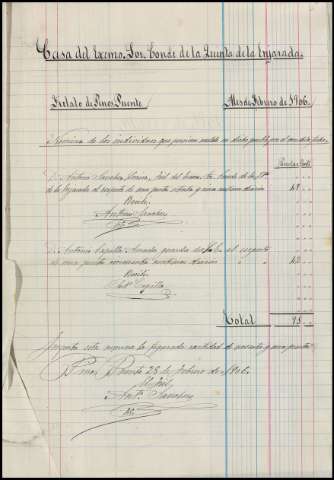 Casa del Excmo. Sor. Conde de la Quinta de la Enjarada.
Estado de Pinos Puente Mes de Febrero de 1906.
Nomina de los individuos que perciben sueldo en dicho punto, por el mes de la fecha.
Pesetas Cts
D. Antonio Sanchez fiel del Excmo. Sr. Conde de la Qta
de la Enjarada al respecto de una peseta setenta y cinco centimos diarios
Recibi
Antonio Sanchez
D. Antonio Capilla guarda de al respecto
de una peseta cincuenta centimos diarios 42
Recibi
Anto Capilla
Total
Importa esta nomina la figurada cantidad de noventa y una pesetas
Pinos Puente 28 de Febrero de 1906.
El fiel
Anto Sanchez